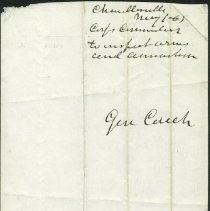 Chancellorsville
May 1 - 63
Corps Commanders
to inspect arms
and ammunition
Gen Couch